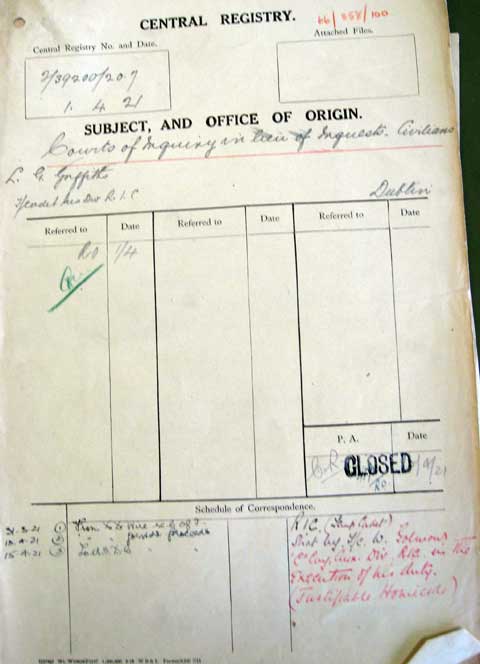 CENTRAL REGISTRY.
66/358/100
Central Registry No. and Date.
Attached Files.
2/39200/207
1. 4 21
SUBJECT, AND OFFICE OF ORIGIN.
Courts of Inquiry in lieu of Inquests. Civilians
L. G. Griffiths
T/cadet Aux Div R.I.C
Dublin
Referred to Date Referred to Date Referred to Date
RO 1/4
P. A. Date
CLOSED
RO
Schedule of Correspondence.
31-3-21 (1)
13-4-21 (2)
15-4-21 (3)
R.I.C. (Temp Cadet)
Shot by T/C. W.
Coy, Aux. Div. RIC. in the
Execution of his duty.
(Justifiable Homicide)